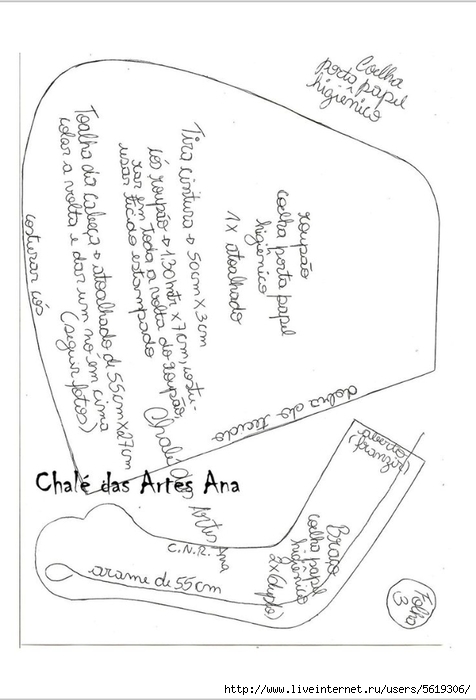 Coelha
porta papel
higiênico
roupão
coelha porta papel
higiênico
1x atoalhado
Tira cintura → 50cm x 3cm
viés roupão → 1.30 mtr x 7cm, costu-
rar em toda a volta do roupão,
usar tecido estampado
Toalha da cabeça → atoalhado de 55cm x 27cm
a volta e dar um nó em cima
(seguir fotos)
costurar viés
dobra do tecido
Chalé das Artes Ana
Chalé das Artes Ana
aberto
(franzir)
Braço
coelha papel
higiênico
2x (duplo)
C.N.R.
arame de 55cm
Folha
3
http://www.liveinternet.ru/users/5619306/